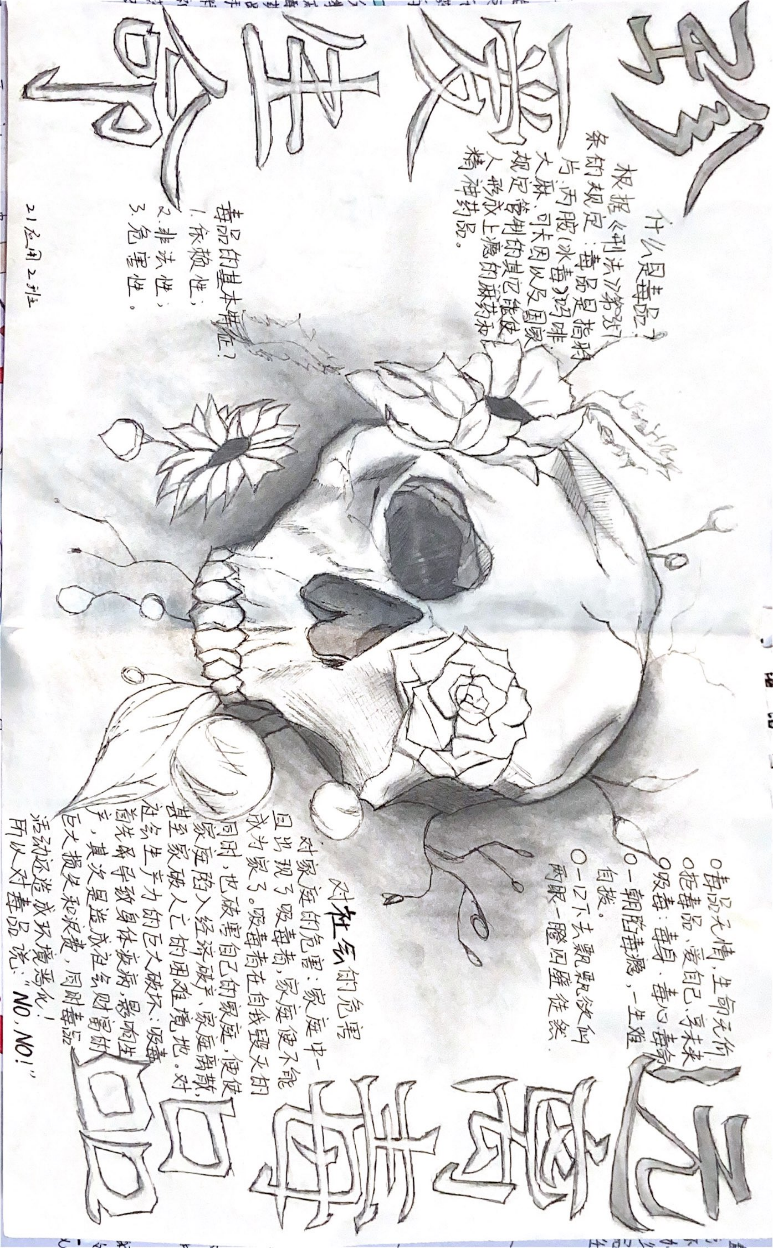 珍爱生命
什么是毒品?
根据《刑法》第357
条的规定:毒品是指鸦
片、丙胺(冰毒)、吗啡
大麻、可卡因以及国家
规定管制的其它能使
人形成上瘾的麻药和
精神药品。
毒品的基本特征?
1.依赖性;
2.非法性;
3.危害性。
21应用2班
远离毒品
○毒品无情,生命无价
○拒毒品、爱自己、享未来
○吸毒:毒身、毒心、毒命
○一朝陷毒瘾,一生难
自拔。
○一口下去飘飘欲仙
两眼一瞪四壁徒然.
对社会的危害
对家庭的危害:家庭中一
旦出现了吸毒者,家庭便不能
成为家了。吸毒者在自我毁灭的
同时,也破害自己的家庭,便使
家庭陷入经济破产、家庭离散,
甚至家破人亡的困难境地。对
社会生产力的巨大破坏:吸毒
首先导致身体疾病,影响生
产,其次是造成社会财富的
巨大损失和浪费,同时毒品
活动还造成环境恶化!
所以对毒品说:“NO,NO!”